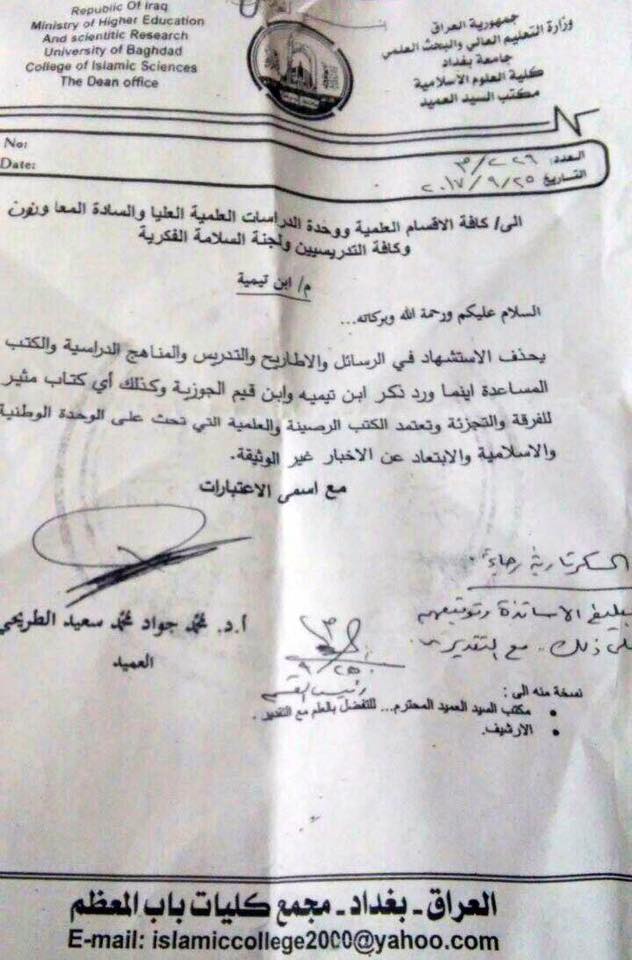 Republic Of Iraq
Ministry of Higher Education
And scientific Research
University of Baghdad
College of Islamic Sciences
The Dean office
جمهورية العراق
وزارة التعليم العالي والبحث العلمي
جامعة بغداد
كلية العلوم الاسلامية
مكتب السيد العميد
No:
Date:
العدد: ٣/٢٢٦
التاريخ ٢٠١٧/٩/٢٥
الى/ كافة الاقسام العلمية ووحدة الدراسات العلمية العليا والسادة المعاونون
وكافة التدريسيين ولجنة السلامة الفكرية
م/ ابن تيمية
السلام عليكم ورحمة الله وبركاته...
يحذف الاستشهاد في الرسائل والاطاريح والتدريس والمناهج الدراسية والكتب
المساعدة اينما ورد ذكر ابن تيميه وابن قيم الجوزية وكذلك أي كتاب مثير
للفرقة والتجزئة وتعتمد الكتب الرصينة والعلمية التي تحث على الوحدة الوطنية
والاسلامية والابتعاد عن الاخبار غير الوثيقة.
مع اسمى الاعتبارات
أ.د. محمد جواد محمد سعيد الطريحي
العميد
السكرتارية رجاءً
تبليغ الاساتذة وتوقيعهم
على ذلك.. مع التقدير
٩/٢٥
رئيس القسم
نسخة منه الى :
• مكتب السيد العميد المحترم... للتفضل بالعلم مع التقدير .
• الارشيف.
العراق - بغداد - مجمع كليات باب المعظم
E-mail: islamiccollege2000@yahoo.com